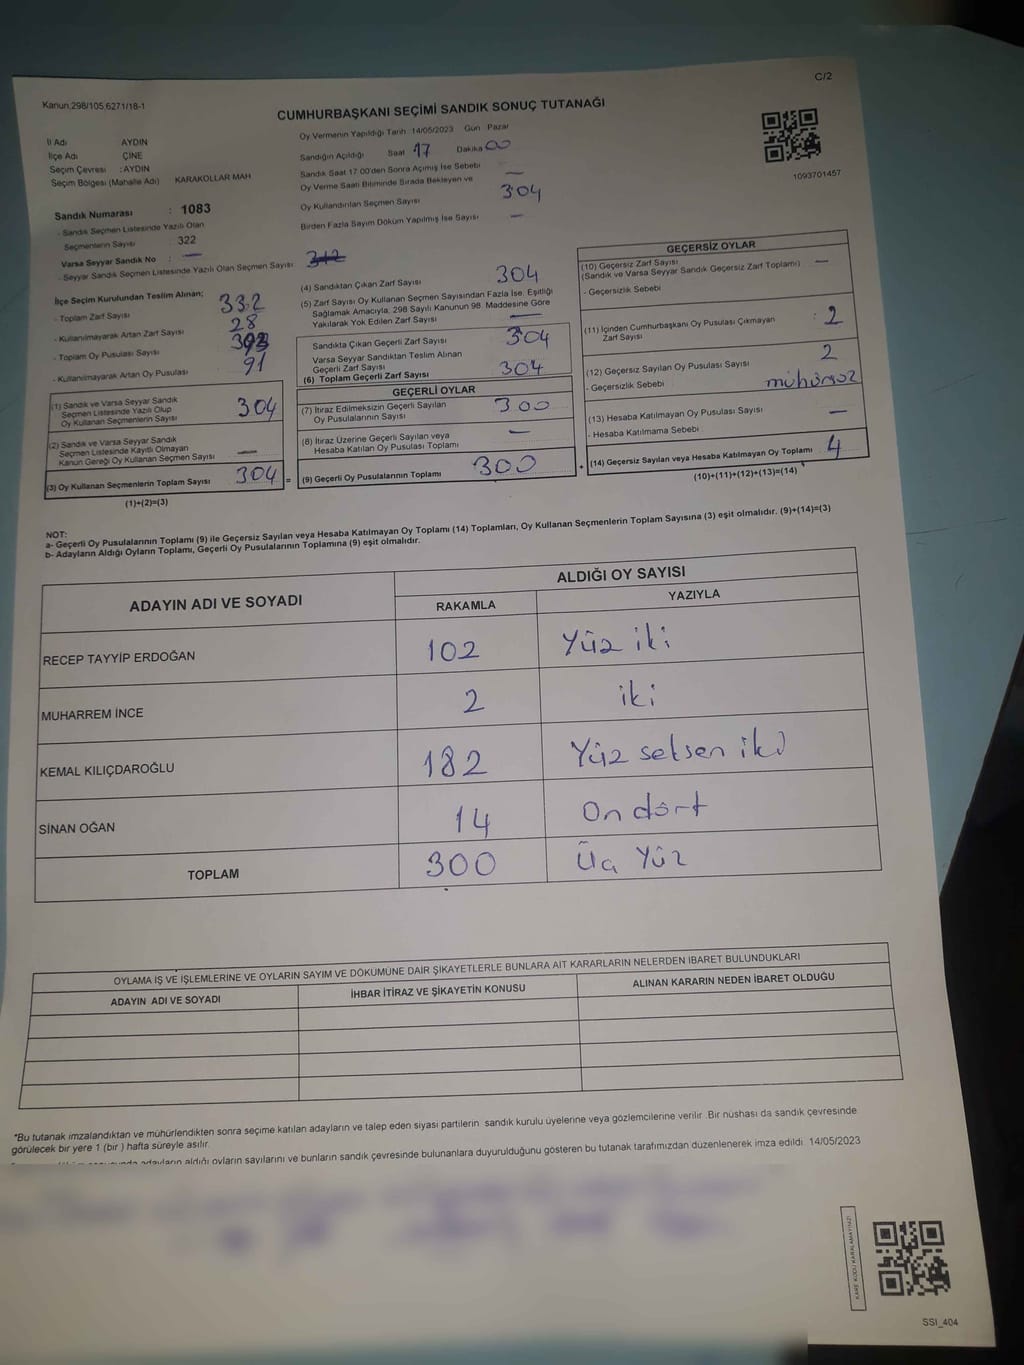 C/2
Kanun;298/105,6271/18-1
CUMHURBAŞKANI SEÇİMİ SANDIK SONUÇ TUTANAĞI
Oy Vermenin Yapıldığı Tarih 14/05/2023 Gün Pazar
İl Adı AYDIN
İlçe Adı ÇİNE
Seçim Çevresi : AYDIN
Seçim Bölgesi (Mahalle Adı) KARAKOLLAR MAH
Sandığın Açıldığı Saat 17 Dakika 00
Sandık Saat 17.00'den Sonra Açımış İse Sebebi —
Oy Verme Saati Bitiminde Sırada Bekleyen ve
Oy Kullandırılan Seçmen Sayısı 304
Birden Fazla Sayım Döküm Yapılmış İse Sayısı —
1093701457
Sandık Numarası : 1083
- Sandık Seçmen Listesinde Yazılı Olan
Seçmenlerin Sayısı 322
Varsa Seyyar Sandık No : —
- Seyyar Sandık Seçmen Listesinde Yazılı Olan Seçmen Sayısı
İlçe Seçim Kurulundan Teslim Alınan;
- Toplam Zarf Sayısı 332
- Kullanılmayarak Artan Zarf Sayısı 28
- Toplam Oy Pusulası Sayısı
- Kullanılmayarak Artan Oy Pusulası 91
(1) Sandık ve Varsa Seyyar Sandık
Seçmen Listesinde Yazılı Olup
Oy Kullanan Seçmenlerin Sayısı 304
(2) Sandık ve Varsa Seyyar Sandık
Seçmen Listesinde Kayıtlı Olmayan
Kanun Gereği Oy Kullanan Seçmen Sayısı —
(3) Oy Kullanan Seçmenlerin Toplam Sayısı 304 =
(1)+(2)=(3)
(4) Sandıktan Çıkan Zarf Sayısı 304
(5) Zarf Sayısı Oy Kullanan Seçmen Sayısından Fazla İse, Eşitliği
Sağlamak Amacıyla, 298 Sayılı Kanunun 98. Maddesine Göre
Yakılarak Yok Edilen Zarf Sayısı —
Sandıkta Çıkan Geçerli Zarf Sayısı 304
Varsa Seyyar Sandıktan Teslim Alınan
Geçerli Zarf Sayısı
(6) Toplam Geçerli Zarf Sayısı 304
GEÇERLİ OYLAR
(7) İtiraz Edilmeksizin Geçerli Sayılan
Oy Pusulalarının Sayısı 300
(8) İtiraz Üzerine Geçerli Sayılan veya
Hesaba Katılan Oy Pusulası Toplamı —
(9) Geçerli Oy Pusulalarının Toplamı 300 +
GEÇERSİZ OYLAR
(10) Geçersiz Zarf Sayısı —
(Sandık ve Varsa Seyyar Sandık Geçersiz Zarf Toplamı)
- Geçersizlik Sebebi
(11) İçinden Cumhurbaşkanı Oy Pusulası Çıkmayan : 2
Zarf Sayısı
(12) Geçersiz Sayılan Oy Pusulası Sayısı 2
- Geçersizlik Sebebi mühürsüz
(13) Hesaba Katılmayan Oy Pusulası Sayısı —
- Hesaba Katılmama Sebebi
(14) Geçersiz Sayılan veya Hesaba Katılmayan Oy Toplamı 4
(10)+(11)+(12)+(13)=(14)
NOT:
a- Geçerli Oy Pusulalarının Toplamı (9) ile Geçersiz Sayılan veya Hesaba Katılmayan Oy Toplamı (14) Toplamları, Oy Kullanan Seçmenlerin Toplam Sayısına (3) eşit olmalıdır. (9)+(14)=(3)
b- Adayların Aldığı Oyların Toplamı, Geçerli Oy Pusulalarının Toplamına (9) eşit olmalıdır.
ADAYIN ADI VE SOYADI
ALDIĞI OY SAYISI
RAKAMLA YAZIYLA
RECEP TAYYİP ERDOĞAN 102 Yüz iki
MUHARREM İNCE 2 iki
KEMAL KILIÇDAROĞLU 182 Yüz seksen iki
SİNAN OĞAN 14 On dört
TOPLAM 300 Üç Yüz
OYLAMA İŞ VE İŞLEMLERİNE VE OYLARIN SAYIM VE DÖKÜMÜNE DAİR ŞİKAYETLERLE BUNLARA AİT KARARLARIN NELERDEN İBARET BULUNDUKLARI
ADAYIN ADI VE SOYADI İHBAR İTİRAZ VE ŞİKAYETİN KONUSU ALINAN KARARIN NEDEN İBARET OLDUĞU
"Bu tutanak imzalandıktan ve mühürlendikten sonra seçime katılan adayların ve talep eden siyasi partilerin sandık kurulu üyelerine veya gözlemcilerine verilir. Bir nüshası da sandık çevresinde
görülecek bir yere 1 (bir ) hafta süreyle asılır.
adayların aldığı oyların sayılarını ve bunların sandık çevresinde bulunanlara duyurulduğunu gösteren bu tutanak tarafımızdan düzenlenerek imza edildi. 14/05/2023
KARE KODU KARALAMAYINIZ!
SSI_404